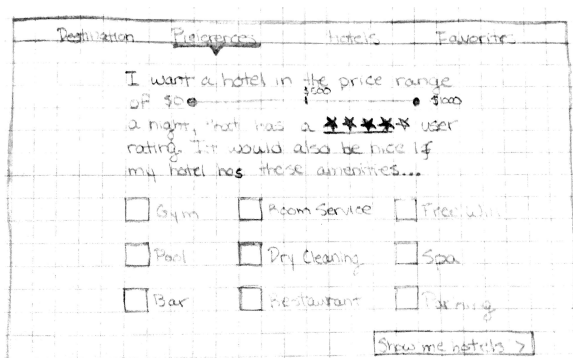 Destination Preferences Hotels Favorites
I want a hotel in the price range
$500
of $0 $1000
a night, that has a ★★★★☆ user
rating. It would also be nice if
my hotel has these amenities...
Gym Room Service Free
Pool Dry Cleaning Spa
Bar Restaurant Parking
Show me hotels >